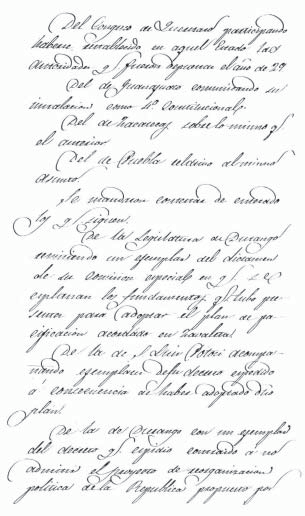 Del Congreso de Queretaro participando
haberse instalado en aquel Estado las
autoridades q.e fueron repuestas el año de 29
Del de Guanajuato comunicando su
instalacion como 4.o Constitucional.
Del de Zacatecas, sobre lo mismo q.e
el anterior
Del de Puebla relativo al mismo
asunto.
Se mandaron contestar de enterado
los q.e siguen.
De la Legislatura de Durango
remitiendo un ejemplar del dictamen
de su comision especial en q.e se
esplanan los fundamentos q.e tubo pre
sentes para adoptar el plan de pa-
cificacion acordado en Zavaleta.
De la de S. Luis Potosi acompa-
ñando ejemplares de su decreto espedido
á consecuencia de haber adoptado dho
plan.
De la de Durango con un ejemplar
del decreto q.e espidio contraido á no
admitir el proyecto de reorganizacion
politica de la Republica propuesto por